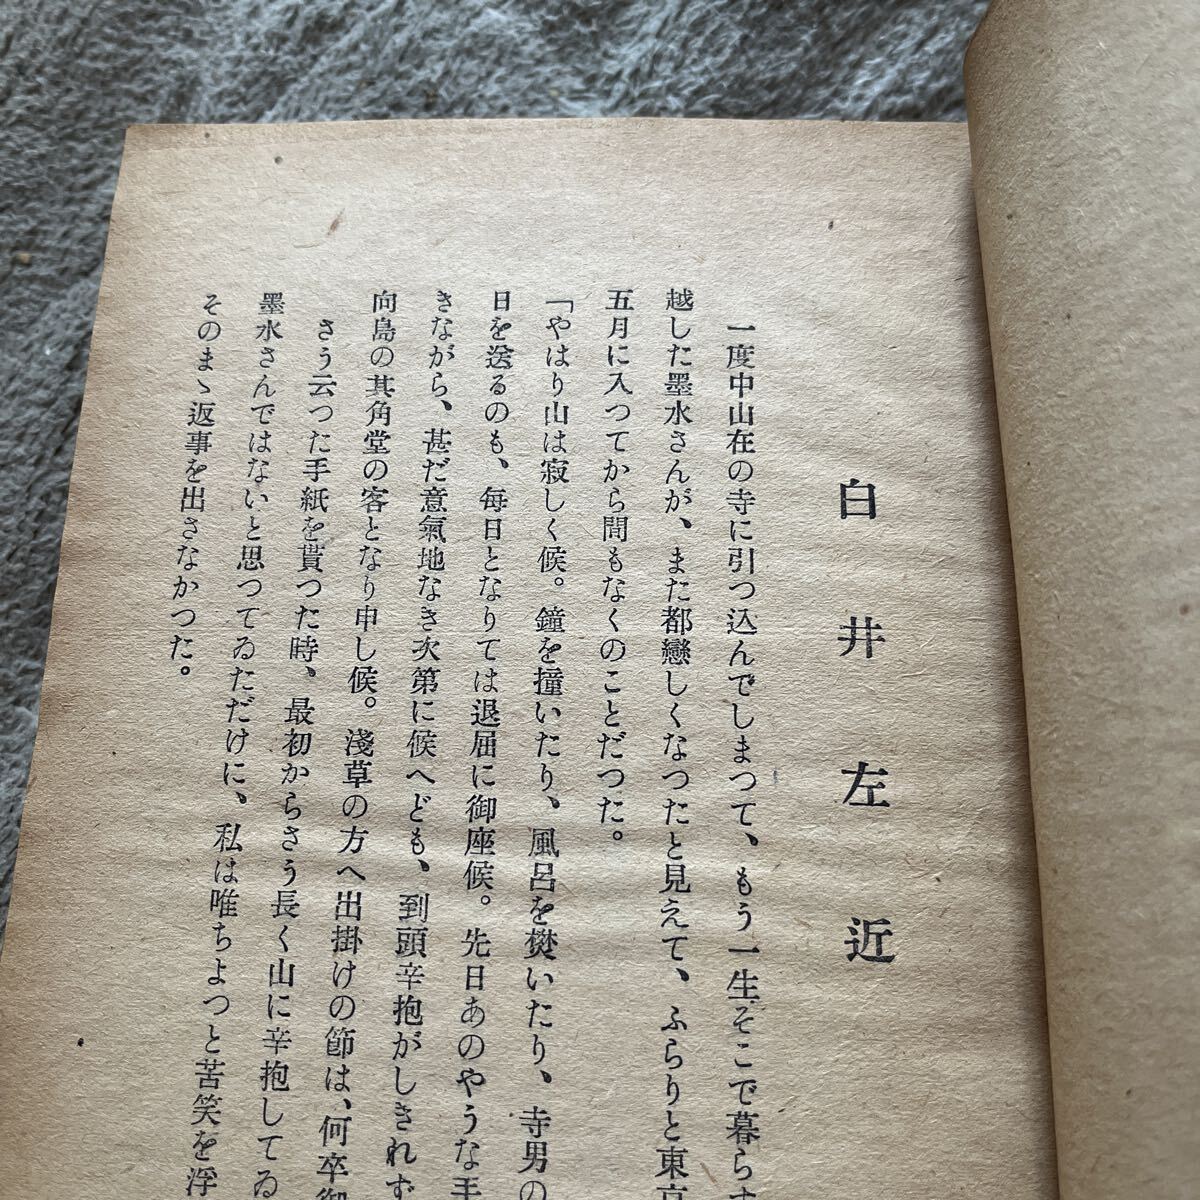 白井左近
一度中山在の寺に引つ込んでしまつて、もう一生そこで暮らす
越した墨水さんが、また都戀しくなつたと見えて、ふらりと東京
五月に入つてから間もなくのことだつた。
「やはり山は寂しく候。鐘を撞いたり、風呂を焚いたり、寺男の
日を送るのも、毎日となりては退屈に御座候。先日あのやうな手
きながら、甚だ意氣地なき次第に候へども、到頭辛抱がしきれず
向島の其角堂の客となり申し候。淺草の方へ出掛けの節は、何卒御
さう云つた手紙を貰つた時、最初からさう長く山に辛抱してゐ
墨水さんではないと思つてゐただけに、私は唯ちよつと苦笑を浮
そのまゝ返事を出さなかつた。